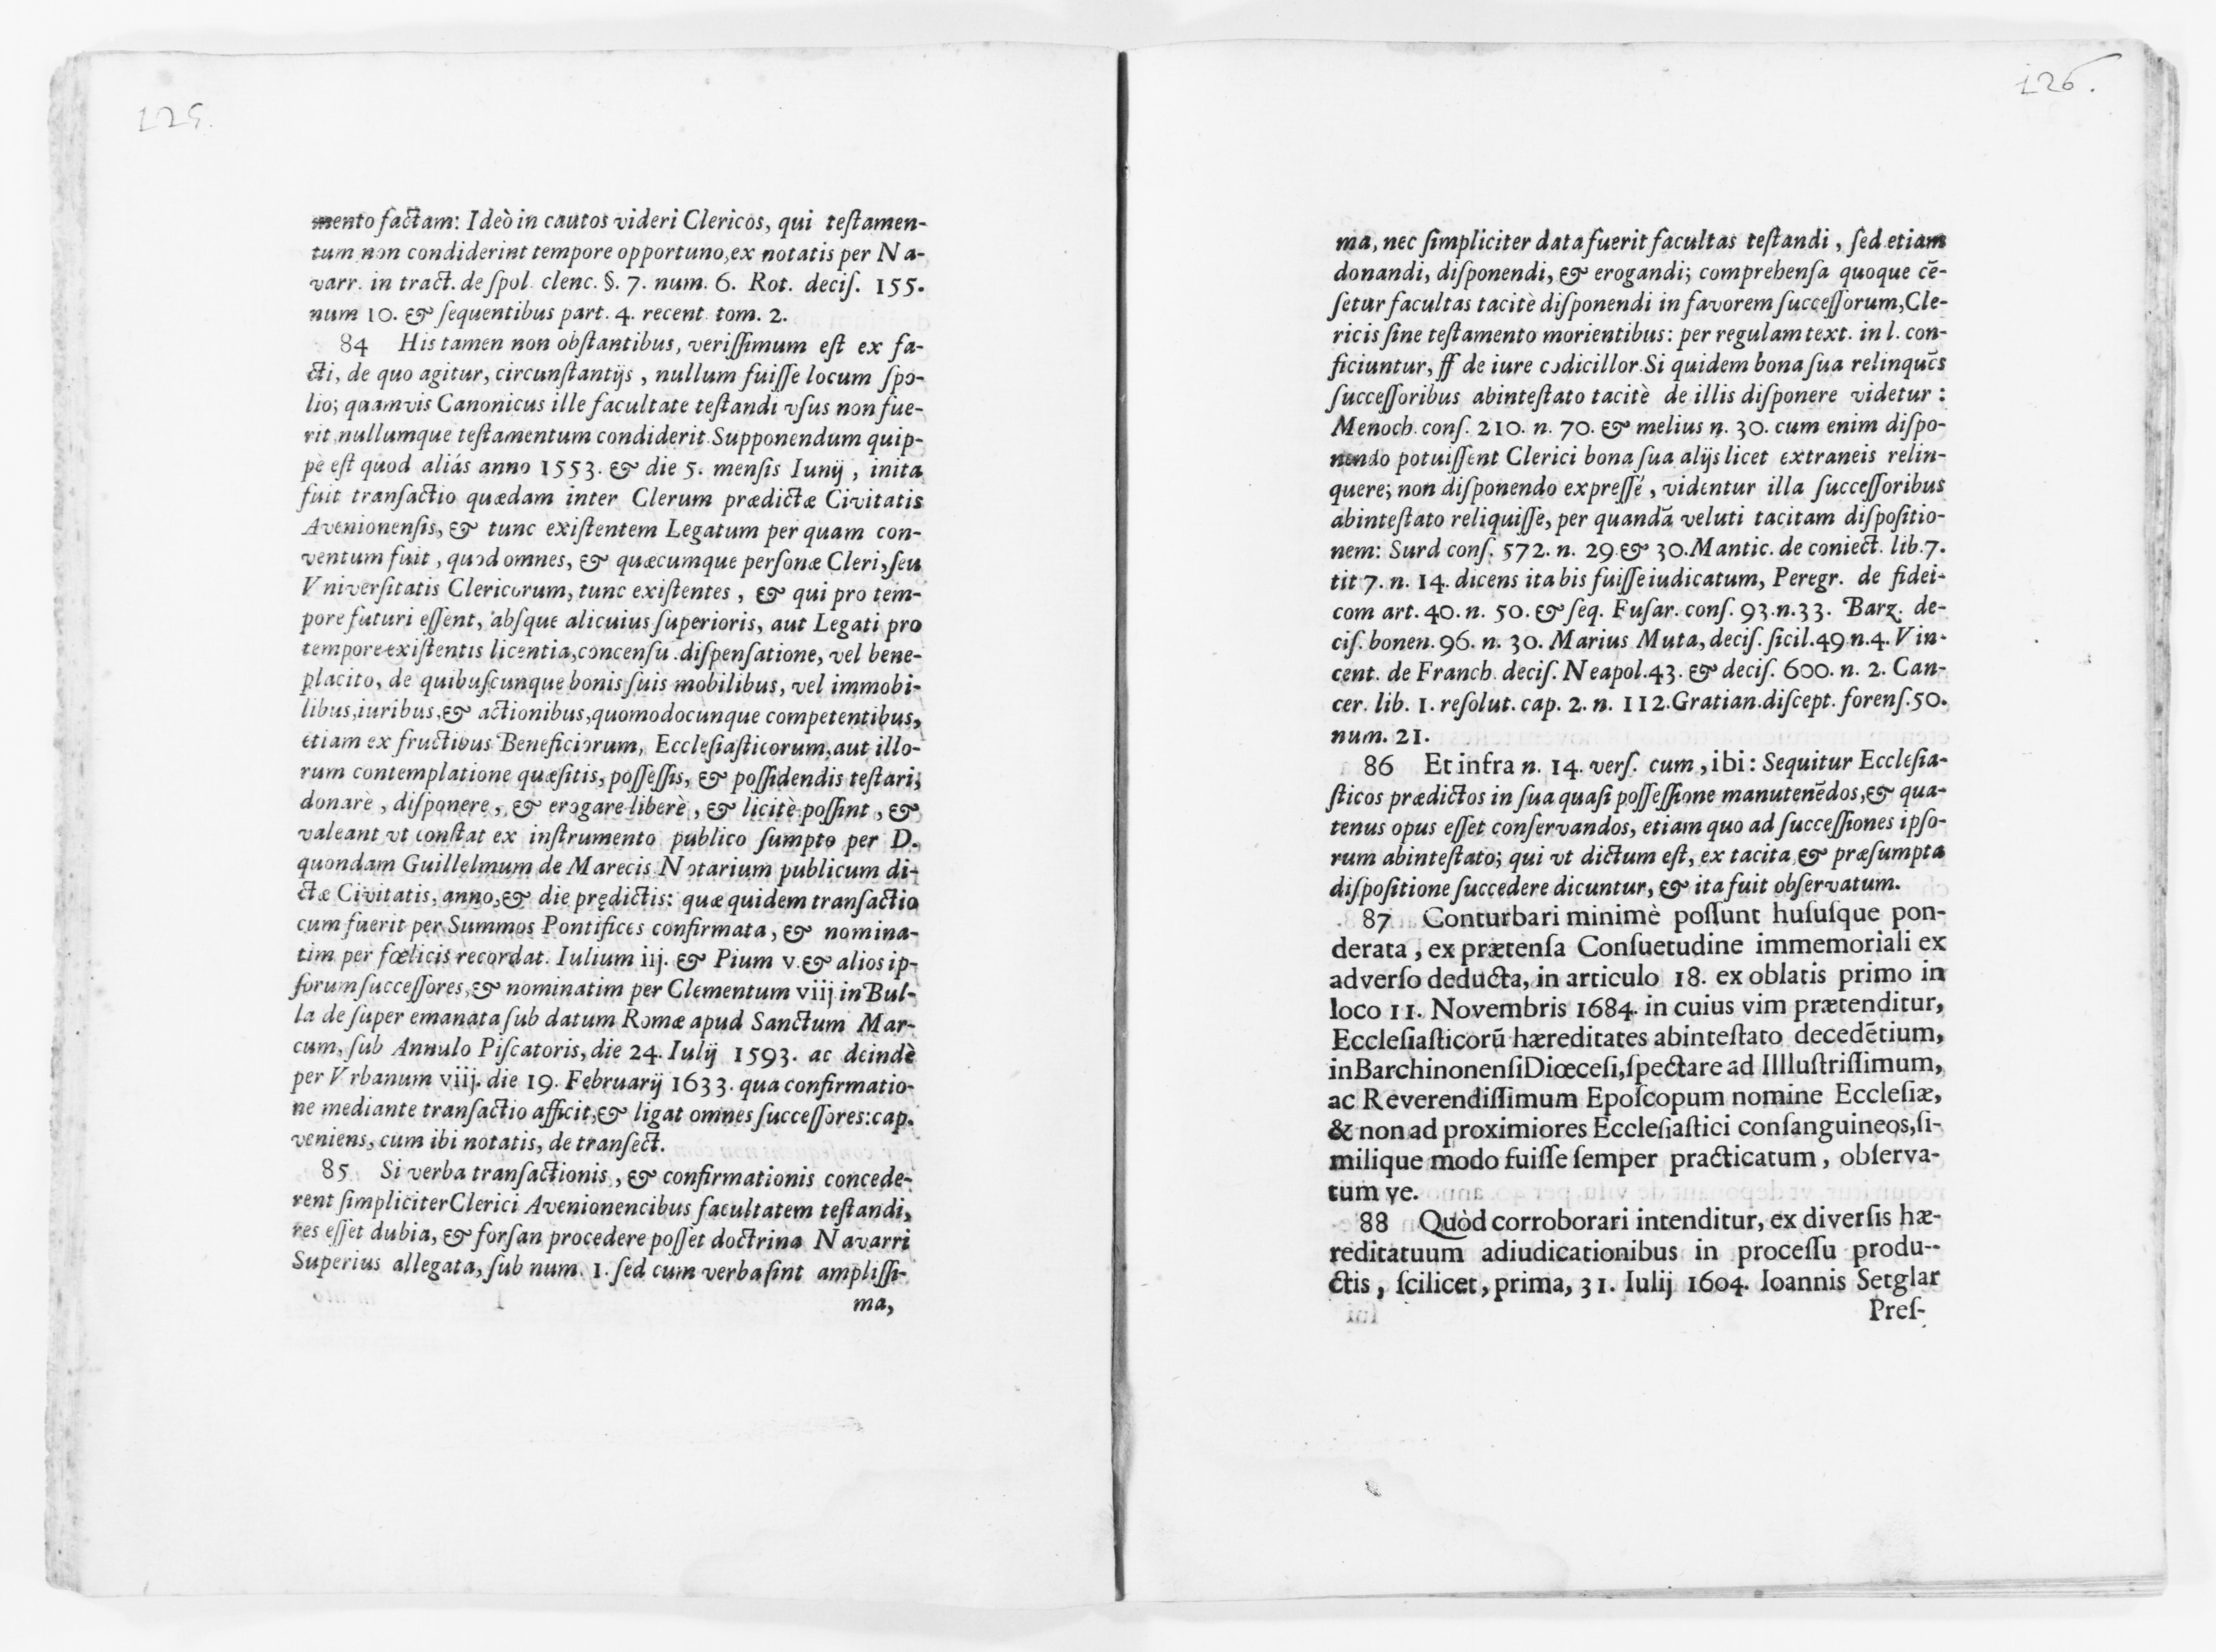 125.
mento factam: Ideò in cautos videri Clericos, qui teſtamen-
tum non condiderint tempore opportuno, ex notatis per Na-
varr. in tract. de ſpol. clenc. §. 7. num. 6. Rot. deciſ. 155.
num 10. & ſequentibus part. 4. recent. tom. 2.
84 His tamen non obſtantibus, veriſſimum eſt ex fa-
cti, de quo agitur, circunſtantijs, nullum fuiſſe locum ſpo-
lio; quamvis Canonicus ille facultate teſtandi vſus non fue-
rit, nullumque teſtamentum condiderit. Supponendum quip-
pè eſt quod aliás anno 1553. & die 5. menſis Iunij, inita
fuit tranſactio quædam inter Clerum prædictæ Civitatis
Avenionenſis, & tunc exiſtentem Legatum per quam con-
ventum fuit, quod omnes, & quæcumque perſonæ Cleri, ſeu
Vniverſitatis Clericorum, tunc exiſtentes, & qui pro tem-
pore futuri eſſent, abſque alicuius ſuperioris, aut Legati pro
tempore exiſtentis licentia, concenſu. diſpenſatione, vel bene-
placito, de quibuſcunque bonis ſuis mobilibus, vel immobi-
libus, iuribus, & actionibus, quomodocunque competentibus,
etiam ex fructibus Beneficiorum, Eccleſiaſticorum, aut illo-
rum contemplatione quæſitis, poſſeſſis, & poſſidendis teſtari,
donarè, diſponere, & erogare liberè, & licitè poſſint, &
valeant vt conſtat ex inſtrumento publico ſumpto per D.
quondam Guillelmum de Marecis Notarium publicum di-
ctæ Civitatis, anno, & die prędictis: quæ quidem tranſactio
cum fuerit per Summos Pontifices confirmata, & nomina-
tim per fœlicis recordat. Iulium iij. & Pium v. & alios ip-
ſorum ſucceſſores, & nominatim per Clementum viij in Bul-
la de ſuper emanata ſub datum Romæ apud Sanctum Mar-
cum, ſub Annulo Piſcatoris, die 24. Iulij 1593. ac deindè
per Vrbanum viij. die 19. Februarij 1633. qua confirmatio-
ne mediante tranſactio afficit, & ligat omnes ſucceſſores: cap.
veniens, cum ibi notatis, de tranſect.
85 Si verba tranſactionis, & confirmationis concede-
rent ſimpliciter Clerici Avenionencibus facultatem teſtandi,
res eſſet dubia, & forſan procedere poſſet doctrina Navarri
Superius allegata, ſub num. 1. ſed cum verba ſint ampliſſi-
ma,
126.
ma, nec ſimpliciter data fuerit facultas teſtandi, ſed etiam
donandi, diſponendi, & erogandi; comprehenſa quoque cē-
ſetur facultas tacitè diſponendi in favorem ſucceſſorum, Cle-
ricis ſine teſtamento morientibus: per regulam text. in l. con-
ficiuntur, ff de iure codicillor. Si quidem bona ſua relinquēs
ſucceſſoribus abinteſtato tacitè de illis diſponere videtur:
Menoch. conſ. 210. n. 70. & melius n. 30. cum enim diſpo-
nendo potuiſſent Clerici bona ſua alijs licet extraneis relin-
quere; non diſponendo expreſſé, videntur illa ſucceſſoribus
abinteſtato reliquiſſe, per quandã veluti tacitam diſpoſitio-
nem: Surd conſ. 572. n. 29. & 30. Mantic. de coniect. lib. 7.
tit 7. n. 14. dicens ita bis fuiſſe iudicatum, Peregr. de fidei-
com art. 40. n. 50. & ſeq. Fuſar. conſ. 93. n. 33. Barz. de-
ciſ. bonen. 96. n. 30. Marius Muta, deciſ. ſicil. 49 n. 4. Vin-
cent. de Franch. deciſ. Neapol. 43. & deciſ. 600. n. 2. Can-
cer. lib. 1. reſolut. cap. 2. n. 112. Gratian. diſcept. forenſ. 50.
num. 21.
86 Et infra n. 14. verſ. cum, ibi: Sequitur Eccleſia-
ſticos prædictos in ſua quaſi poſſeſſione manutenēdos, & qua-
tenus opus eſſet conſervandos, etiam quo ad ſucceſſiones ipſo-
rum abinteſtato; qui vt dictum eſt, ex tacita & præſumpta
diſpoſitione ſuccedere dicuntur, & ita fuit obſervatum.
87 Conturbari minimè poſſunt huſuſque pon-
derata, ex prætenſa Conſuetudine immemoriali ex
adverſo deducta, in articulo 18. ex oblatis primo in
loco 11. Novembris 1684. in cuius vim prætenditur,
Eccleſiaſticorũ hæreditates abinteſtato decedētium,
in Barchinonenſi Diœceſi, ſpectare ad Illluſtriſſimum,
ac Reverendiſſimum Epoſcopum nomine Eccleſiæ,
& non ad proximiores Eccleſiaſtici conſanguineos, ſi-
milique modo fuiſſe ſemper practicatum, obſerva-
tum ve.
88 Quòd corroborari intenditur, ex diverſis hæ-
reditatuum adiudicationibus in proceſſu produ--
ctis, ſcilicet, prima, 31. Iulij 1604. Ioannis Setglar
Preſ-